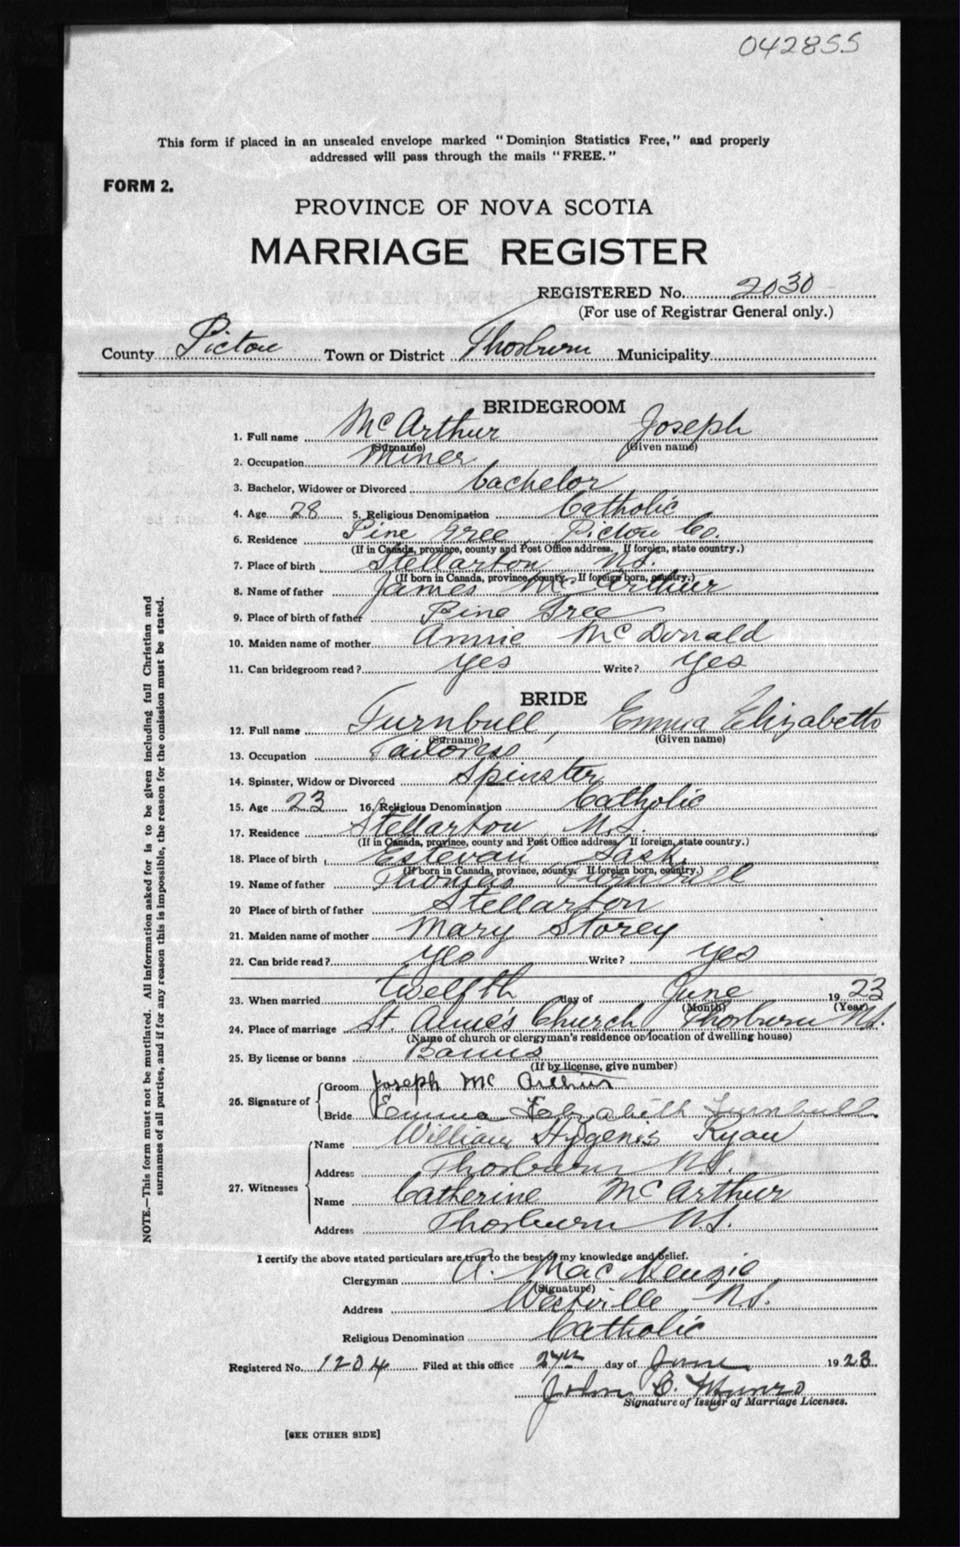 042855
This form if placed in an unsealed envelope marked "Dominion Statistics Free," and properly
addressed will pass through the mails "FREE."
FORM 2.
PROVINCE OF NOVA SCOTIA
MARRIAGE REGISTER
REGISTERED No. 2030
(For use of Registrar General only.)
County Pictou Town or District Thorburn Municipality
BRIDEGROOM
1. Full name McArthur Joseph
(Surname) (Given name)
2. Occupation Miner
3. Bachelor, Widower or Divorced bachelor
4. Age 28 5. Religious Denomination Catholic
6. Residence Pine Tree Pictou Co.
(If in Canada, province, county and Post Office address. If foreign, state country.)
7. Place of birth Stellarton N.S.
(If born in Canada, province, county. If foreign born, country.)
8. Name of father James McArthur
9. Place of birth of father Pine Tree
10. Maiden name of mother Annie McDonald
11. Can bridegroom read? yes Write? yes
BRIDE
12. Full name Turnbull, Emma Elizabeth
(Surname) (Given name)
13. Occupation Tailoress
14. Spinster, Widow or Divorced Spinster
15. Age 23 16. Religious Denomination Catholic
17. Residence Stellarton N.S.
(If in Canada, province, county and Post Office address. If foreign, state country.)
18. Place of birth Estevan Sask.
(If born in Canada, province, county. If foreign born, country.)
19. Name of father Thomas Turnbull
20 Place of birth of father Stellarton
21. Maiden name of mother Mary Storey
22. Can bride read? yes Write? yes
23. When married twelfth day of June 1923
(Month) (Year)
24. Place of marriage St. Anne's Church Thorburn N.S.
(Name of church or clergyman's residence or location of dwelling house)
25. By license or banns Banns
(If by license, give number)
26. Signature of Groom Joseph McArthur
Bride Emma Elizabeth Turnbull
27. Witnesses Name William Hygenis Ryan
Address Thorburn N.S.
Name Catherine McArthur
Address Thorburn N.S.
I certify the above stated particulars are true to the best of my knowledge and belief.
Clergyman A. MacKenzie
(Signature)
Address Westville N.S.
Religious Denomination Catholic
Registered No. 1204 Filed at this office 27th day of June 1923
John C. Munro
Signature of Issuer of Marriage Licenses.
[SEE OTHER SIDE]
NOTE.—This form must not be mutilated. All information asked for is to be given including full Christian and
surnames of all parties, and if for any reason this is impossible, the reason for the omission must be stated.